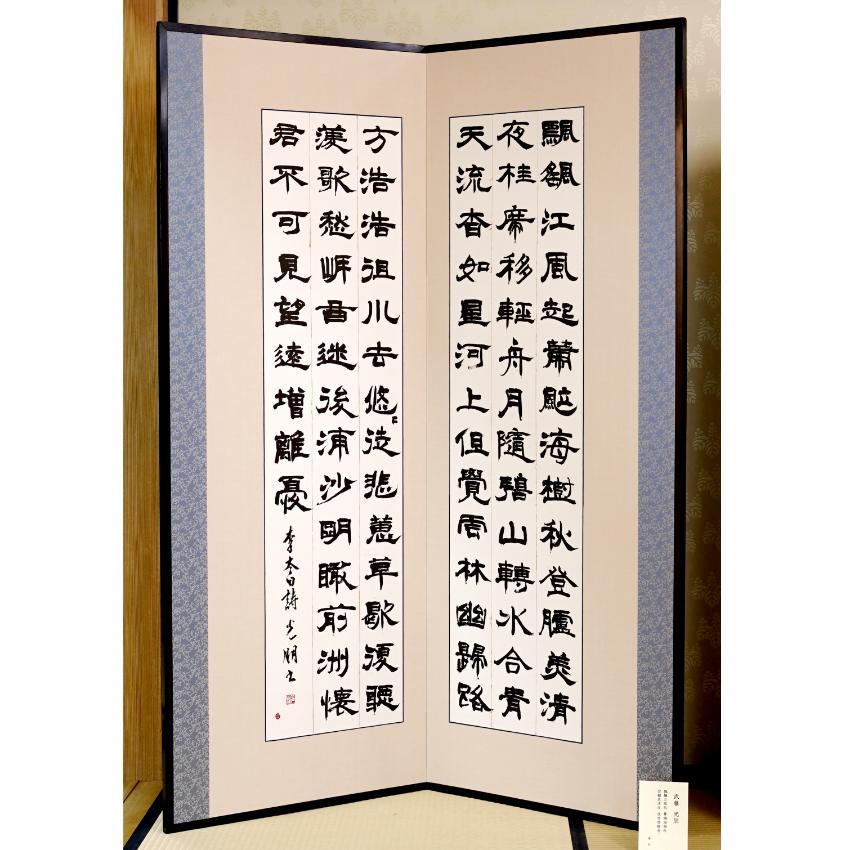 飄颻江風起蕭颯海樹秋登艫美清
夜桂席移輕舟月隨碧山轉水合青
天流杳如星河上但覺雲林幽歸路
方浩浩徂川去悠〻徒悲蕙草歇復聽
蔆歌愁岸曲迷後浦沙明瞰前洲懷
君不可見望遠增離憂
李太白詩 光朋書